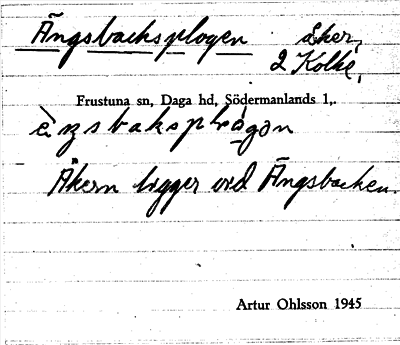 Ängsbacksplogen åker,
2 Kolke,
Frustuna sn, Daga hd, Södermanlands l,.
Åkern ligger vid Ängsbacken.
Artur Ohlsson 1945